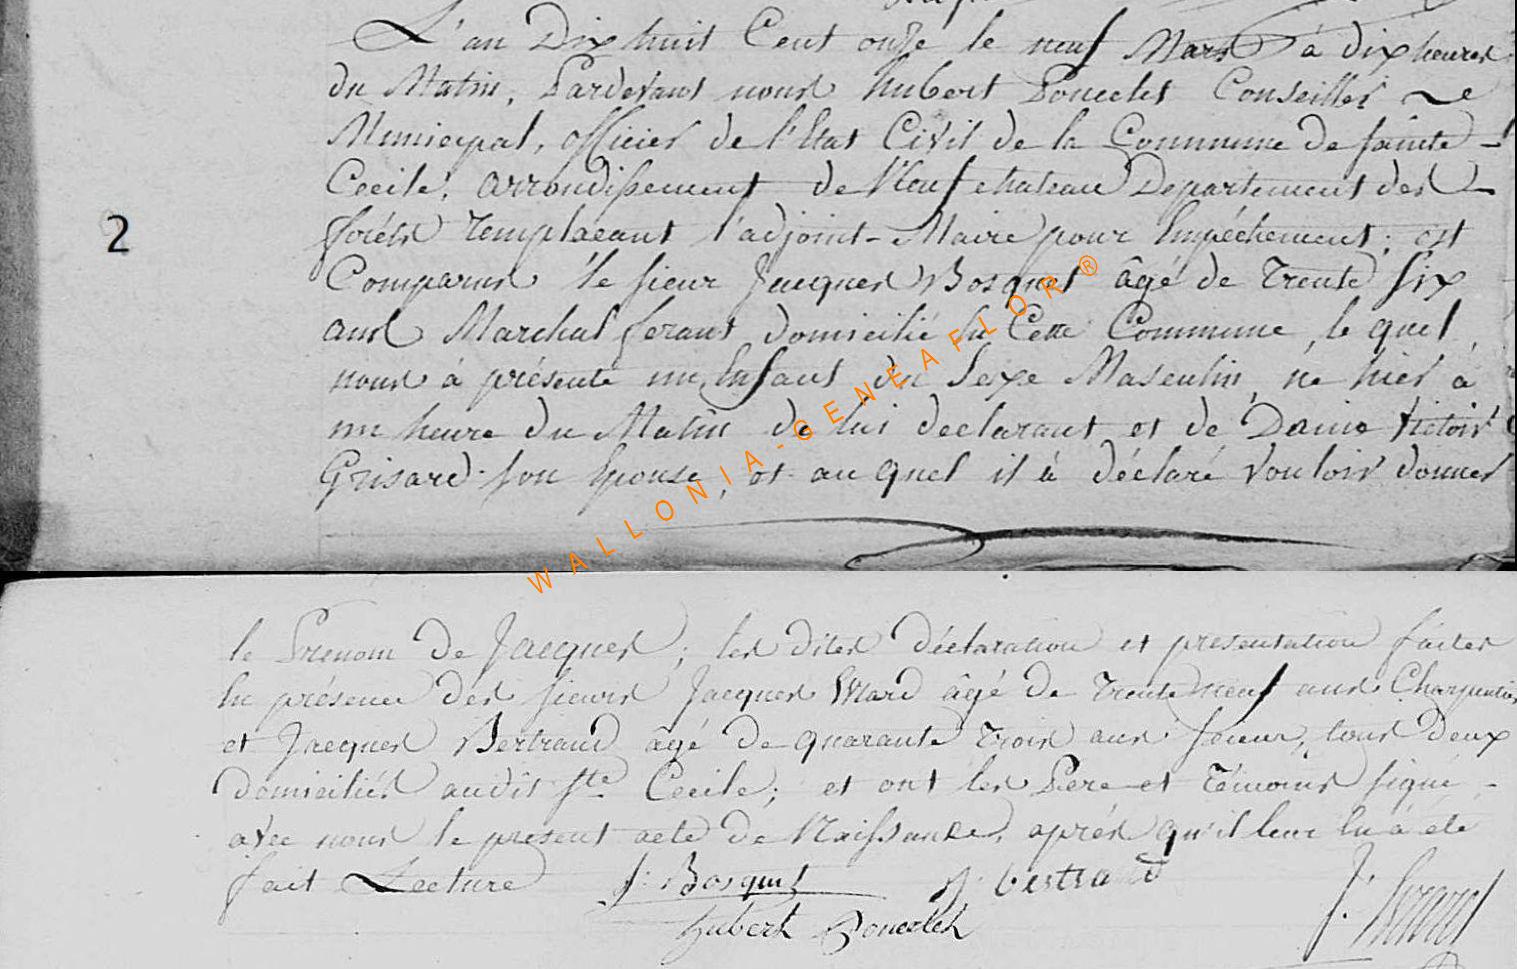 L'an Dix huit Cent onze le neuf Mars à dix heures
du Matin, Pardevant nous hubert Poncelet Conseiller
Municipal, officier de l'Etat Civil de la Commune de sainte
2
Cecile, arrondissement de Neufchateau Departement des
foréts remplacant l'adjoint-Maire pour Empéchement; est
Comparus le sieur Jacques Bosquet âgé de Trente six
ans Marchal ferant domicilié En Cette Commune, le quel
nous à présenté un Enfant du Sexe Masculin, né hier à
un heure du Matin de lui declarant et de Dame Victoir
Grisard son Epouse, et au quel il à déclaré Vouloir donner
WALLONIA-GENEAFLOR®
le Prenom de Jacques; les dites déclaration et presentation faites
En présence des sieurs Jacques âgé de Trente neuf ans Charpentier
et Jacques Bertrand agé de quarante Trois ans, tous deux
domiciliés audit Ste Cecile; et ont les Pere et Témoins signé
avec nous le present acte de Naissance, aprés qu'il leur En à été
fait Lecture J: Bosquet J: bertrand
hubert Poncelet